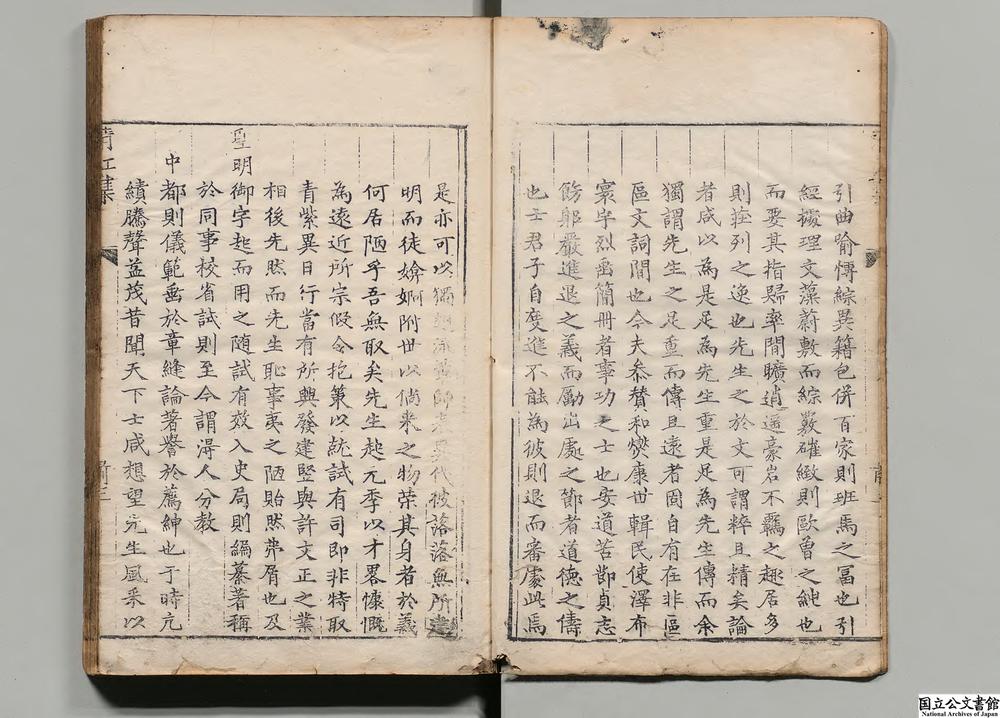 引曲喻愽綜異籍包併百家則班馬之冨也引
經援理文藻蔚敷而綜覈確緻則歐曾之純也
而要其指歸率閒曠逍遥豪宕不羈之趣居多
則莊列之逸也先生之於文可謂粹且精矣論
者咸以為是足為先生重是足為先生傳而余
獨謂先生之足重而傳且逺者固自有在非區
區文詞間也今夫叅賛和爕康世輯民使澤布
寰宇烈畫簡冊者事功之士也安道苦節貞志
飭躬嚴進退之義而勵出處之節者道德之儔
也士君子自度進不能為彼則退而審處此焉
是亦可以獨 師表異代彼落落無所建
明而徒媕婀附世以倘来之物荣其身者於義
何居陋乎吾無取矣先生起元季以才畧慷慨
為逺近所宗假令抱策以就試有司即非特取
青紫異日行當有所興發建竪與許文正之業
相後先然而先生恥事夷之陋貽然弗屑也及
聖明御宇起而用之随試有效入史局則編纂著稱
於同事校省試則至今謂得人分教
中都則儀範畫於章縫論著譽於薦紳也于時元
績騰聲益茂昔聞天下士咸想望先生風采以
清江集
國立公文書館
National Archives of Japan